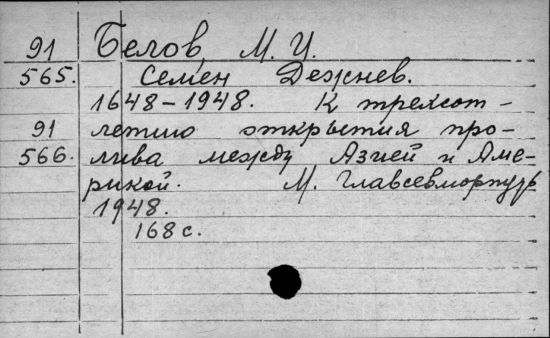 91 Белов, М. И.
565. Семен Дежнев.
1648-1948. К трехсот-
91 летию открытия про-
566. лива между Азией и Аме-
рикой. М. Главсевморпуть
1948.
168 с.